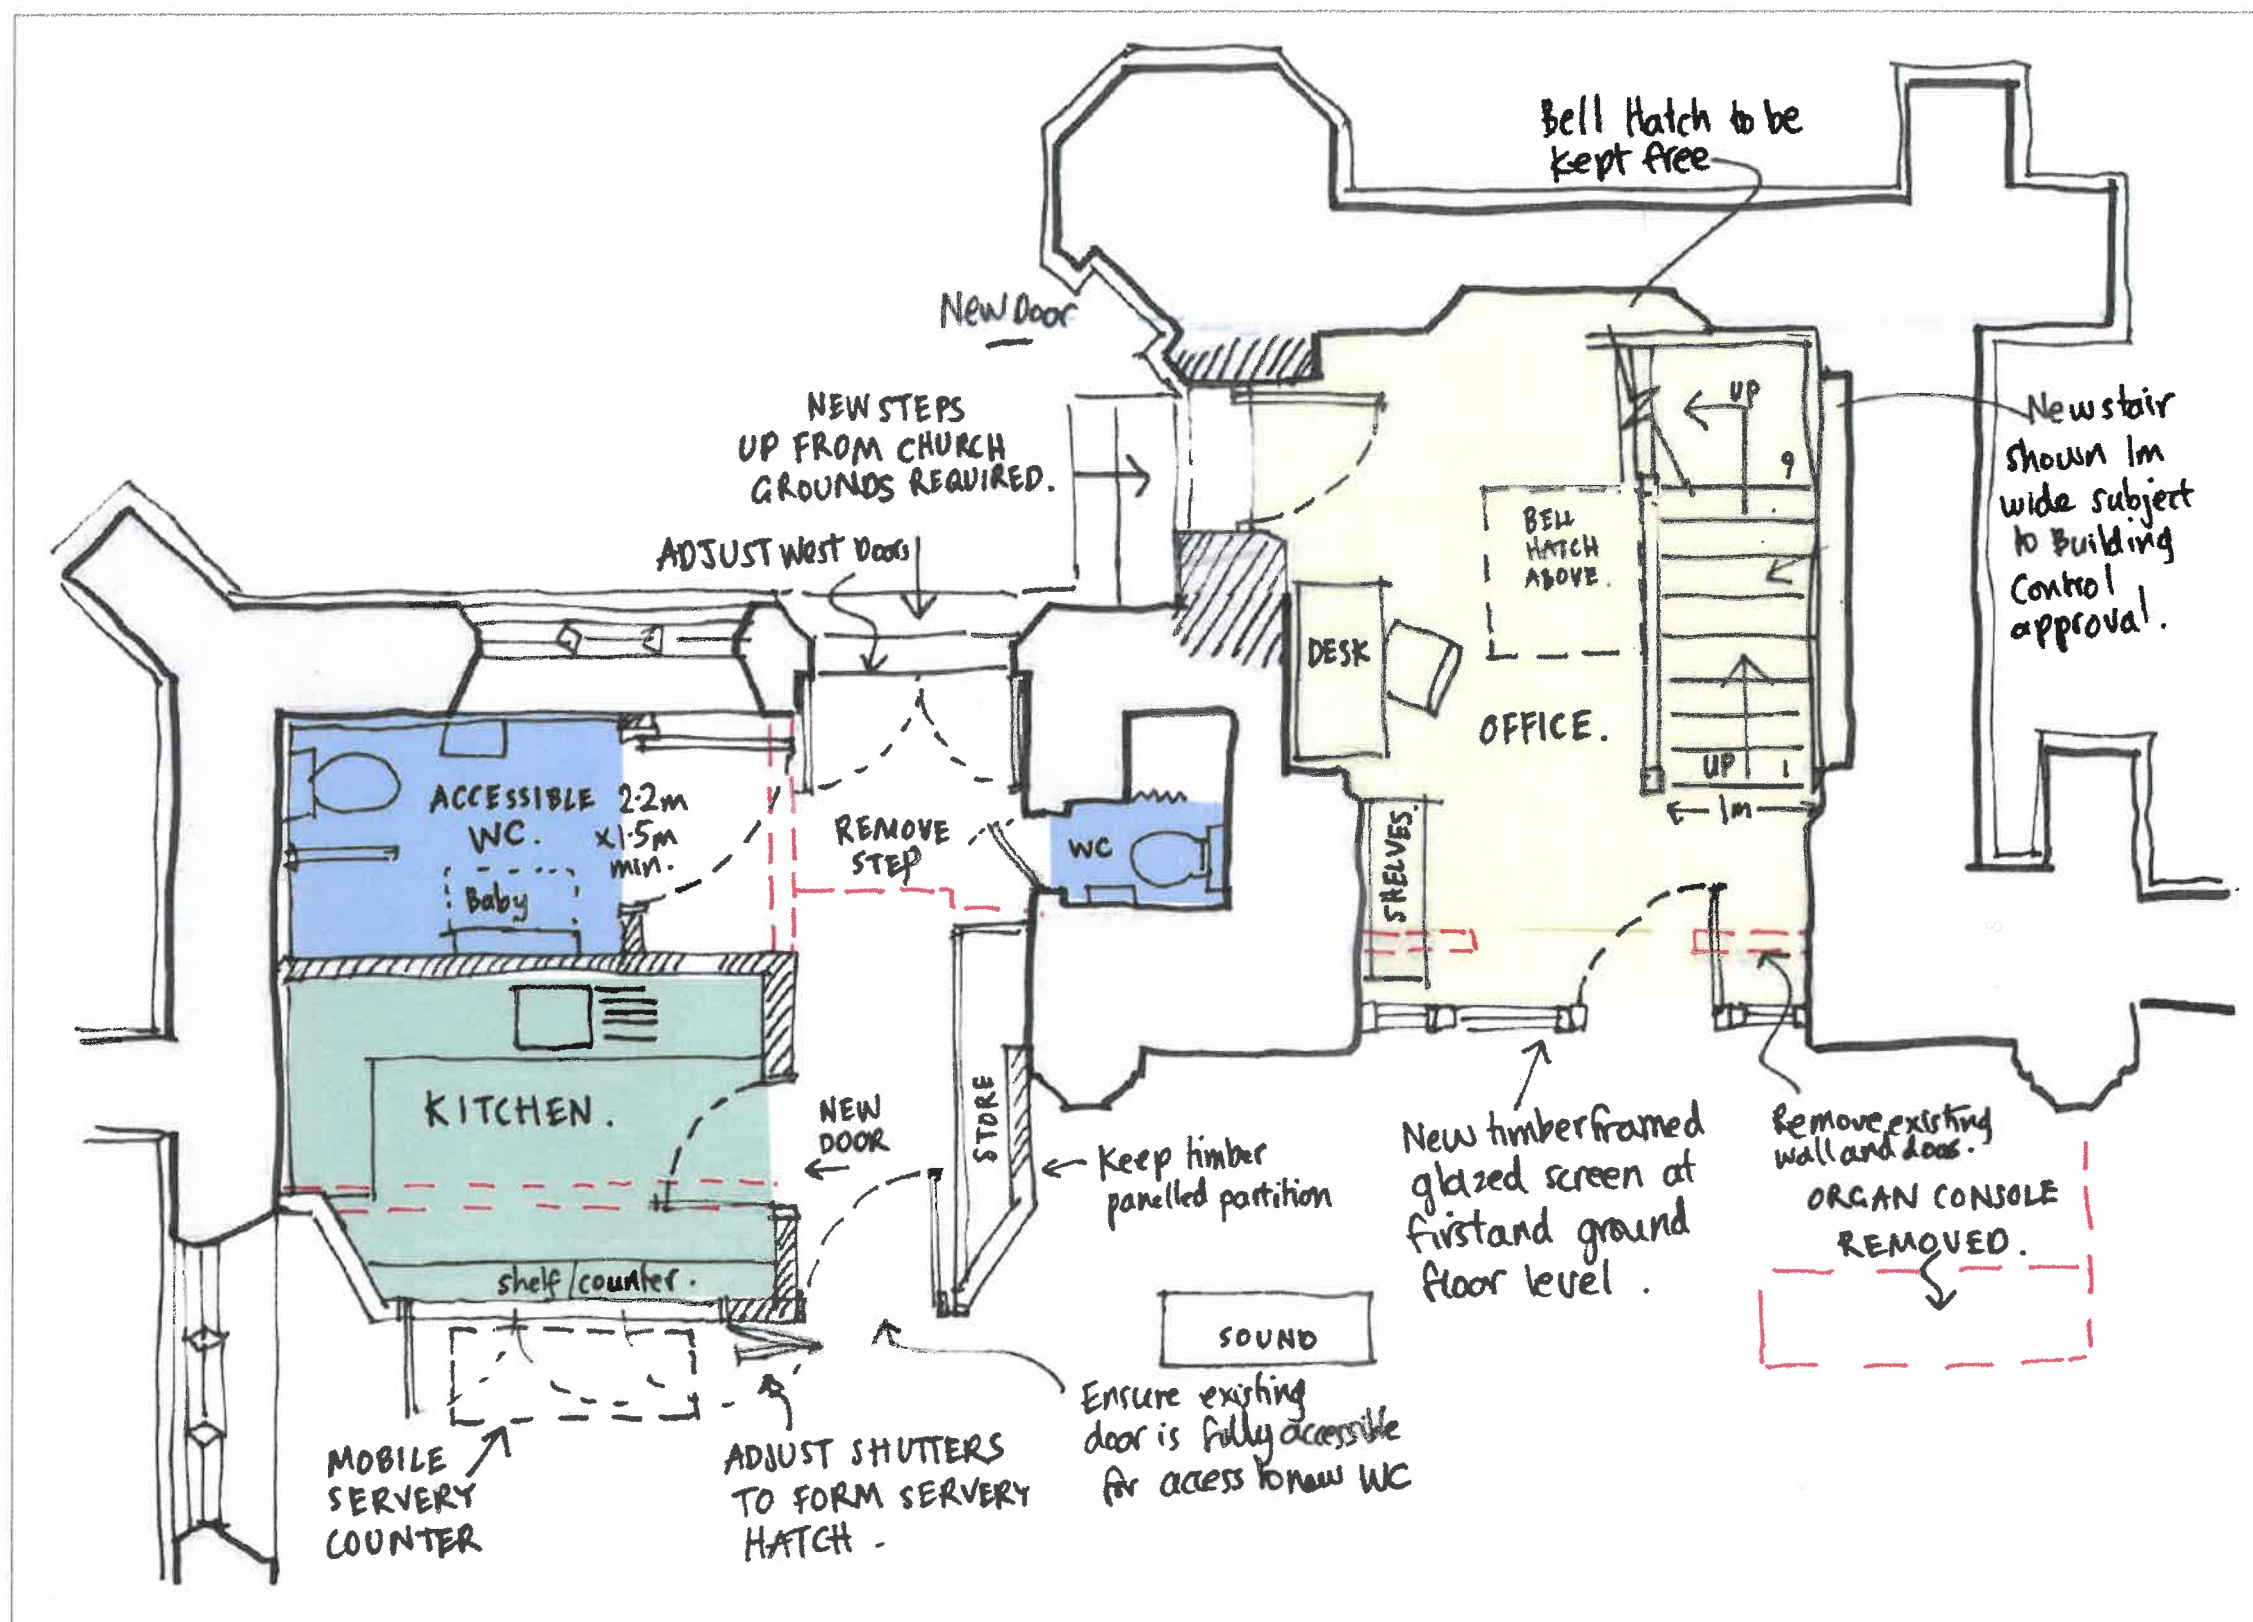 Bell Hatch to be
kept free
New Door
NEW STEPS
UP FROM CHURCH
GROUNDS REQUIRED.
ADJUST West Doors
UP
9
New stair
shown 1m
wide subject
to Building
Control
approval.
BELL
HATCH
ABOVE.
DESK
OFFICE.
UP 1
1m
SHELVES.
ACCESSIBLE
WC.
2.2m
x1.5m
min.
Baby
REMOVE
STEP
WC
KITCHEN.
NEW
DOOR
STORE
shelf/counter.
Keep timber
panelled partition
New timber framed
glazed screen at
first and ground
floor level.
Remove existing
wall and door.
ORGAN CONSOLE
REMOVED.
SOUND
Ensure existing
door is fully accessible
for access to new WC
MOBILE
SERVERY
COUNTER
ADJUST SHUTTERS
TO FORM SERVERY
HATCH.